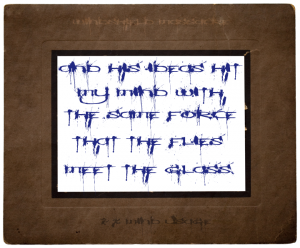 AND HIS IDEAS HIT
MY MIND WITH
THE SAME FORCE
THAT THE FLIES
MEET THE GLASS.